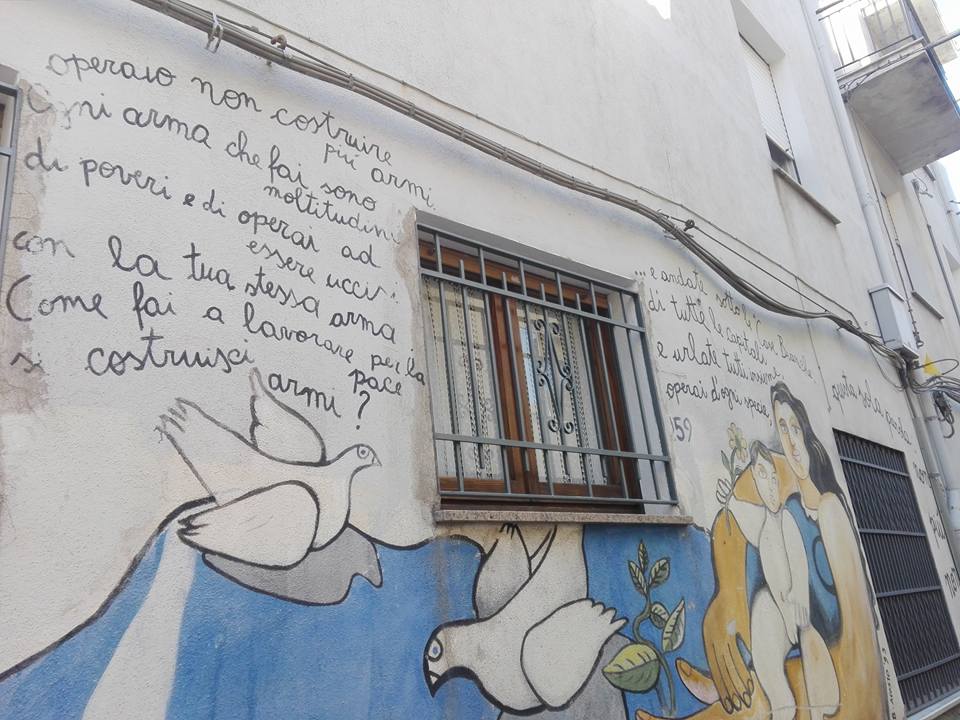 operaio non costruire
più armi.
Ogni arma che fai sono
moltitudini
di poveri e di operai ad
essere uccisi
con la tua stessa arma
Come fai a lavorare per la
pace
si costruisci
armi ?
... e andate sotto le
di tutte le capitali
e urlate tutti insieme
operai d'ogni specie,
59
sola